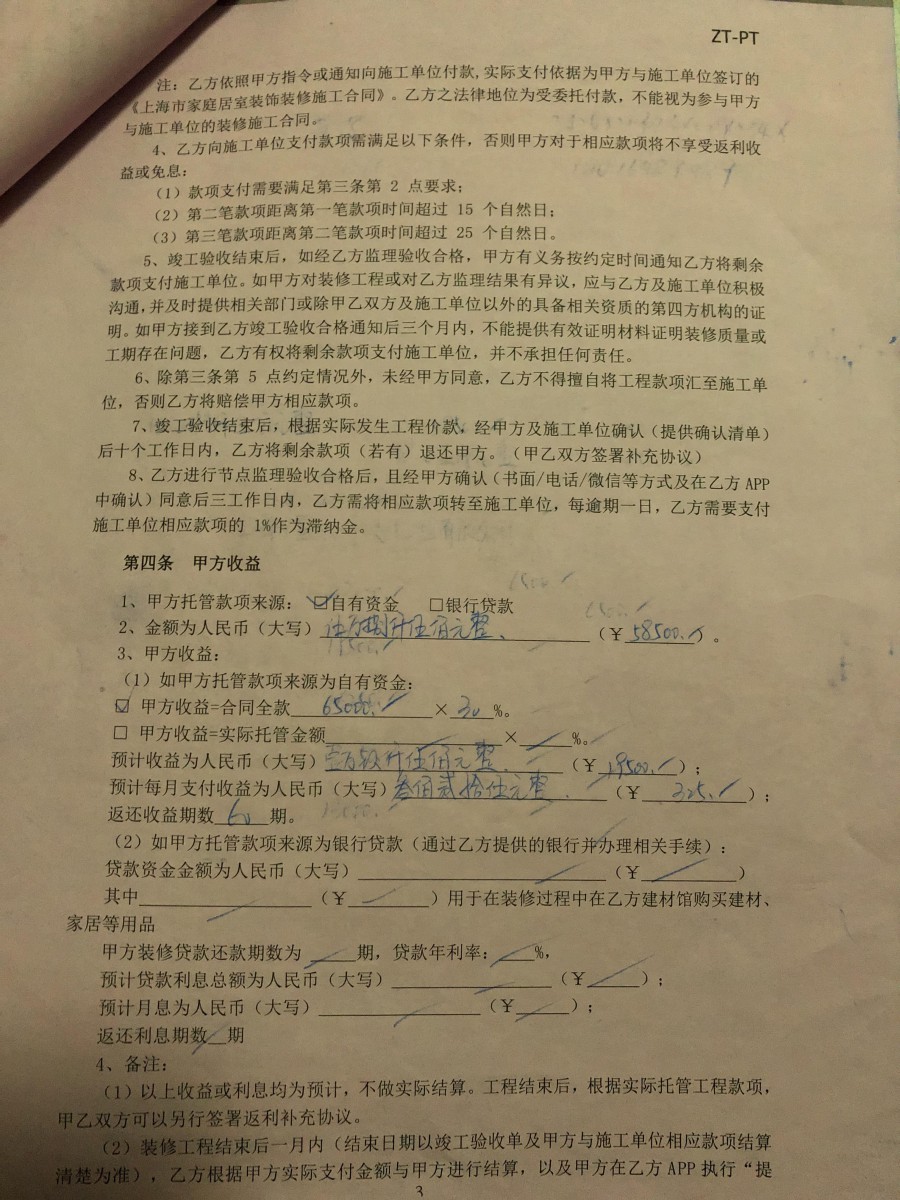 ZT-PT
注：乙方依照甲方指令或通知向施工单位付款,实际支付依据为甲方与施工单位签订的
《上海市家庭居室装饰装修施工合同》。乙方之法律地位为受委托付款，不能视为参与甲方
与施工单位的装修施工合同。
4、乙方向施工单位支付款项需满足以下条件，否则甲方对于相应款项将不享受返利收
益或免息：
（1）款项支付需要满足第三条第 2 点要求；
（2）第二笔款项距离第一笔款项时间超过 15 个自然日；
（3）第三笔款项距离第二笔款项时间超过 25 个自然日。
5、竣工验收结束后，如经乙方监理验收合格，甲方有义务按约定时间通知乙方将剩余
款项支付施工单位。如甲方对装修工程或对乙方监理结果有异议，应与乙方及施工单位积极
沟通,并及时提供相关部门或除甲乙双方及施工单位以外的具备相关资质的第四方机构的证
明。如甲方接到乙方竣工验收合格通知后三个月内，不能提供有效证明材料证明装修质量或
工期存在问题，乙方有权将剩余款项支付施工单位，并不承担任何责任。
6、除第三条第 5 点约定情况外，未经甲方同意，乙方不得擅自将工程款项汇至施工单
位，否则乙方将赔偿甲方相应款项。
7、竣工验收结束后，根据实际发生工程价款，经甲方及施工单位确认（提供确认清单）
后十个工作日内，乙方将剩余款项（若有）退还甲方。（甲乙双方签署补充协议）
8、乙方进行节点监理验收合格后，且经甲方确认（书面/电话/微信等方式及在乙方 APP
中确认）同意后三工作日内，乙方需将相应款项转至施工单位，每逾期一日，乙方需要支付
施工单位相应款项的 1%作为滞纳金。
第四条 甲方收益
1、甲方托管款项来源： ☑自有资金 □银行贷款
2、金额为人民币（大写）伍万捌仟伍佰元整 （￥58500.）。
3、甲方收益：
（1）如甲方托管款项来源为自有资金：
☑ 甲方收益=合同全款 65000. × 30 %。
□ 甲方收益=实际托管金额 × %。
预计收益为人民币（大写）壹万玖仟伍佰元整 （￥19500.）；
预计每月支付收益为人民币（大写）叁佰贰拾伍元整 （￥325.）；
返还收益期数 60 期。
（2）如甲方托管款项来源为银行贷款（通过乙方提供的银行并办理相关手续）：
贷款资金金额为人民币（大写） （￥ ）
其中 （￥ ）用于在装修过程中在乙方建材馆购买建材、
家居等用品
甲方装修贷款还款期数为 期，贷款年利率： %，
预计贷款利息总额为人民币（大写） （￥ ）；
预计月息为人民币（大写） （￥ ）；
返还利息期数 期
4、备注：
（1）以上收益或利息均为预计，不做实际结算。工程结束后，根据实际托管工程款项，
甲乙双方可以另行签署返利补充协议。
（2）装修工程结束后一月内（结束日期以竣工验收单及甲方与施工单位相应款项结算
清楚为准），乙方根据甲方实际支付金额与甲方进行结算，以及甲方在乙方 APP 执行“提
3